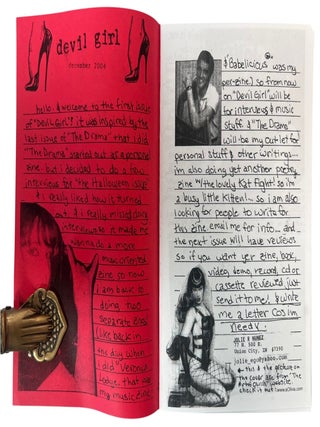 devil girl
december 2004
hello & welcome to the first issue
of "Devil Girl"! it was inspired by the
last issue of "The Drama" that i did.
"The Drama" started out as a personal
zine but i decided to do a few
interviews for "the Halloween issue"
& i really liked how it turned
out & i really missed doing
interviews so it made me
wanna do a more
music oriented
zine so now
i am back to
doing two
separate zines
like back in
the day when
i did "Veronica
Lodge" that was
my music zine
& "babelicious" was my
per-zine.) so from now
on "Devil Girl" will be
for interviews & music
stuff & "The Drama"
will be my outlet for
personal stuff & other writings...
im also doing yet another poetry
zine "#1 the lovely Kat Fight" so im
a busy little kitten!~ so i am also
looking for people to write for
this zine email me for info... and
the next issue will have reviews
so if you want yer zine, book,
video, demo, record, cd or
cassette reviewed, just
send it to me! & write
me a letter cos im
needy~
JULIE R NUNEZ
Union City, IN 47390
julie_epu@yahoo.com
this & the picture on
the cover are from "The
website
check it out